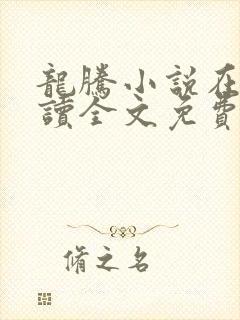 龍騰小說在
讀全文免費
脩之名